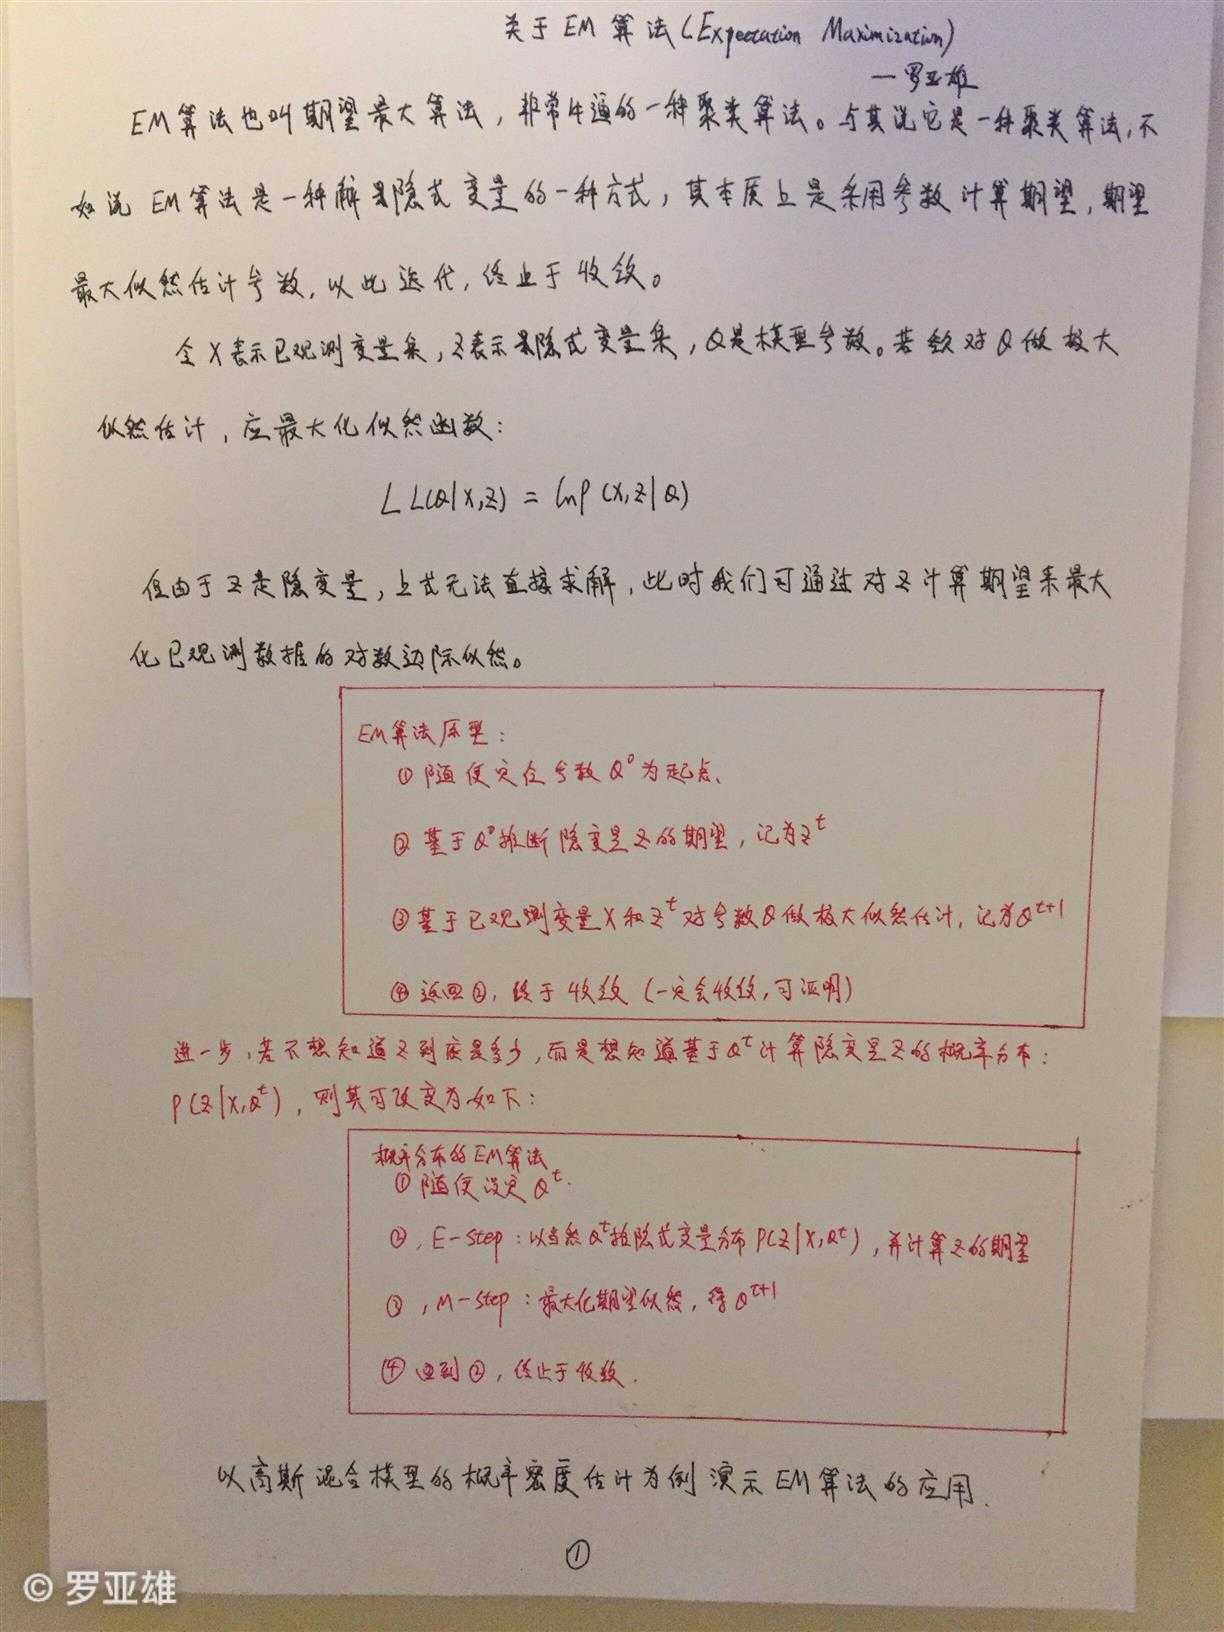 关于EM算法(Expectation Maximization)
—罗亚雄
EM算法也叫期望最大算法，非常普遍的一种聚类算法。与其说它是一种聚类算法，不
如说EM算法是一种解决隐式变量的一种方式，其本质上是采用参数计算期望，期望
最大似然估计参数，以此迭代，终止于收敛。
令X表示已观测变量集，Z表示隐式变量集，Q是模型参数。若欲对Q做极大
似然估计，应最大化似然函数：
LL(Q|X,Z) = lnP(X,Z|Q)
但由于Z是隐变量，上式无法直接求解，此时我们可通过对Z计算期望来最大
化已观测数据的对数边际似然。
EM算法原型：
① 随便定位参数Q⁰为起点、
② 基于Q⁰推断隐变量Z的期望，记为Zᵗ
③ 基于已观测变量X和Zᵗ对参数Q做极大似然估计，记为Qᵗ⁺¹
④ 返回②，终于收敛(一定会收敛，可证明)
进一步，若不想知道Z到底是多少，而是想知道基于Qᵗ计算隐变量Z的概率分布：
P(Z|X,Qᵗ)，则其可改变为如下：
概率分布的EM算法
① 随便设定Qᵗ.
②，E-step：以当然Qᵗ推隐式变量分布P(Z|X,Qᵗ)，并计算Z的期望
③，M-step：最大化期望似然，得Qᵗ⁺¹
④ 回到②，终止于收敛.
以高斯混合模型的概率密度估计为例演示EM算法的应用.
①
© 罗亚雄